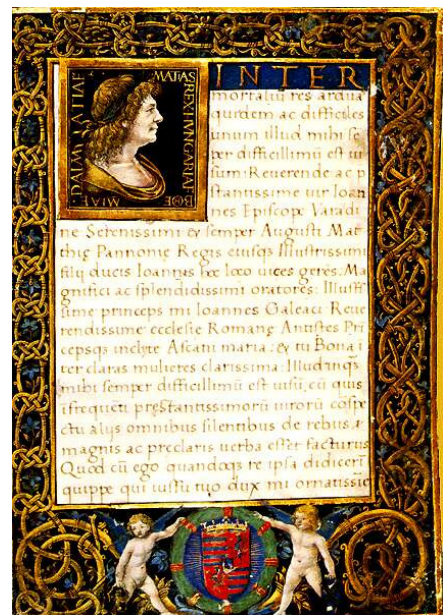 MATIAS REX HVNGARIAE BOEMIAE DALMATIAE
INTER
mortaliũ res ardua
quidem ac difficiles
unum illud mihi sẽ
per difficillimũ est ui
sum: Reuerende ac p
stantissime uir Ioan
nes Episcope Varadi
ne Serenissimi & semper Augusti Mat
thię Pannonię Regis eiusq; Illustrissimi
filij ducis Ioannis hoc loco uices gerẽs: Ma
gnifici ac splendidissimi oratores: Illuss
sime princeps mi Ioannes Galeaci Reue
rendissime ecclesię Romanę Antistes Pri
cepsq; inclyte Ascani maria: & tu Bona i
ter claras mulieres clarissima: Illud inq̃
mihi semper difficillimũ est uisũ, cũ quis
i frequẽti pręstantissimorũ uirorũ cõspe
ctu alijs omnibus silentibus de rebus
magnis ac preclaris uerba esset facturus
Quod cũ ego quandoq; re ipsa didicerĩ
quippe qui iussu tuo dux mi ornatissie